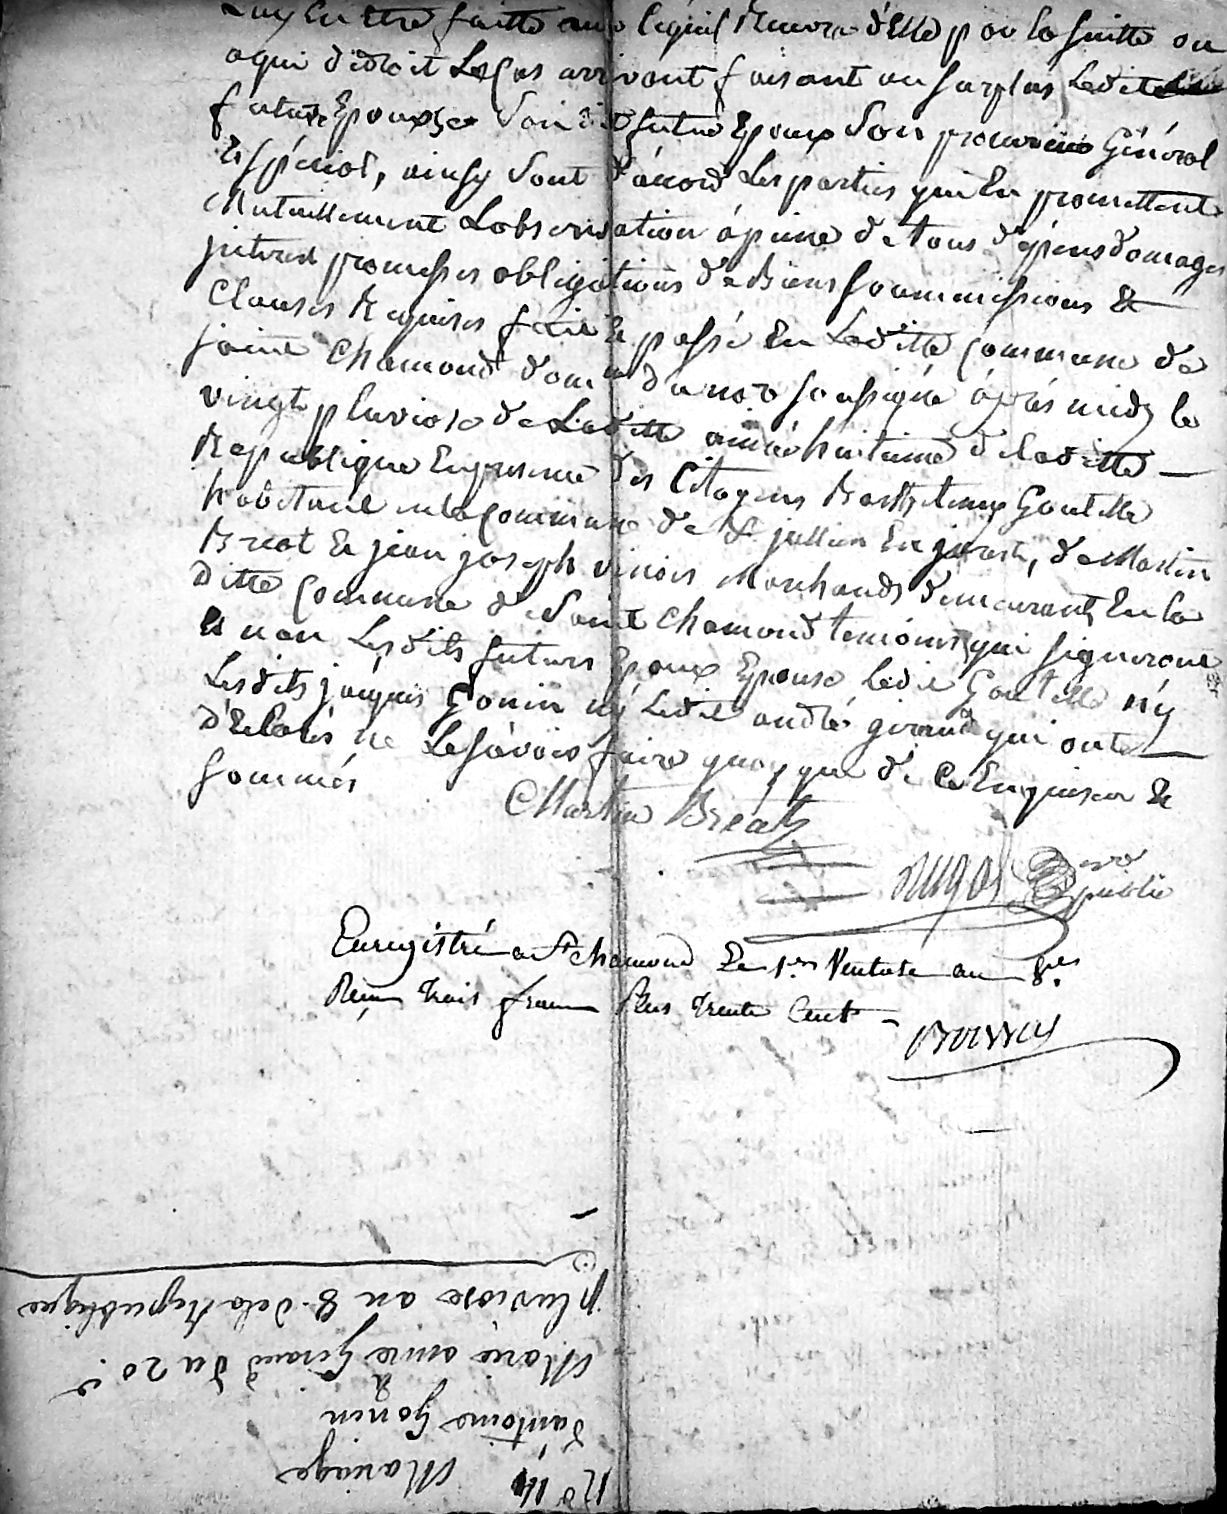 Luy En Etre faitte au lequel Recevra d'Elle par la suitte ou
a qui dedroit Le Cas arrivant faisant au surplus Ledite
future Epouse Sondit futur Epoux Son procureur Général
Et Spécial, ainsy Sont d'acord Les parties qui En promettent
Mutuellement Lobservation á peine de tous dépens domages
jnterest promesses obligations de Biens Soummissions &
Clauses Requises fait & passé En Laditte Commune de
Saint Chamond dom du no.re soussigné áprés midy le
vingt pluviose de Laditte année huitieme de laditte —
Republique En presence des Citoyens Barthelemy Goutelle
habitant en la Commune de St. jullien En jarest, de Martin
Breat & jean joseph Marchands demeurants En la
ditte Commune de Saint Chamond temoins qui signeront
& non Lesdits futurs Epoux Epouse Ledit Goutelle n'y
Lesdits jacques Gonin ny Ledit andré giraud qui onts
d'Eclarés ne Le sávoir faire quoy que de Ce Enquiser &
sommés
Martin Breat
Dugas no.re public
Enregistré a St chamond Le 1.er Ventose an 8.
Reçu trois francs plus trente Cent —
No 14 Mariage
d'antoine Gonin
&
Marie anne Giraud du 20.e
pluviose an 8. de la Republique